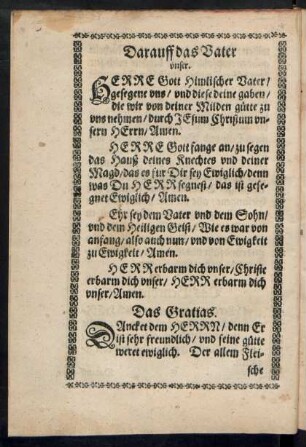 Darauff das Vater
vnser.
HERRE Gott Himlischer Vater/
gesegene vns / vnd diese deine gaben/
die wir von deiner Milden gütte zu
vns nehmen / durch JEsum Christum vn-
sern HErrn / Amen.
HERRE Gott fange an / zu segen
das Hauß deines Knechtes vnd deiner
Magd / das es fur Dir sey Ewiglich / denn
was Du HERR segnest / das ist gese-
gnet Ewiglich / Amen.
Ehr sey dem Vater vnd dem Sohn/
vnd dem Heiligen Geist / Wie es war von
anfang / also auch nun / vnd von Ewigkeit
zu Ewigkeit / Amen.
HERR erbarm dich vnser / Christe
erbarm dich vnser / HERR erbarm dich
vnser / Amen.
Das Gratias.
DAncket dem HERRN / denn Er
ist sehr freundlich / vnd seine gütte
weret ewiglich. Der allem Flei-
sche